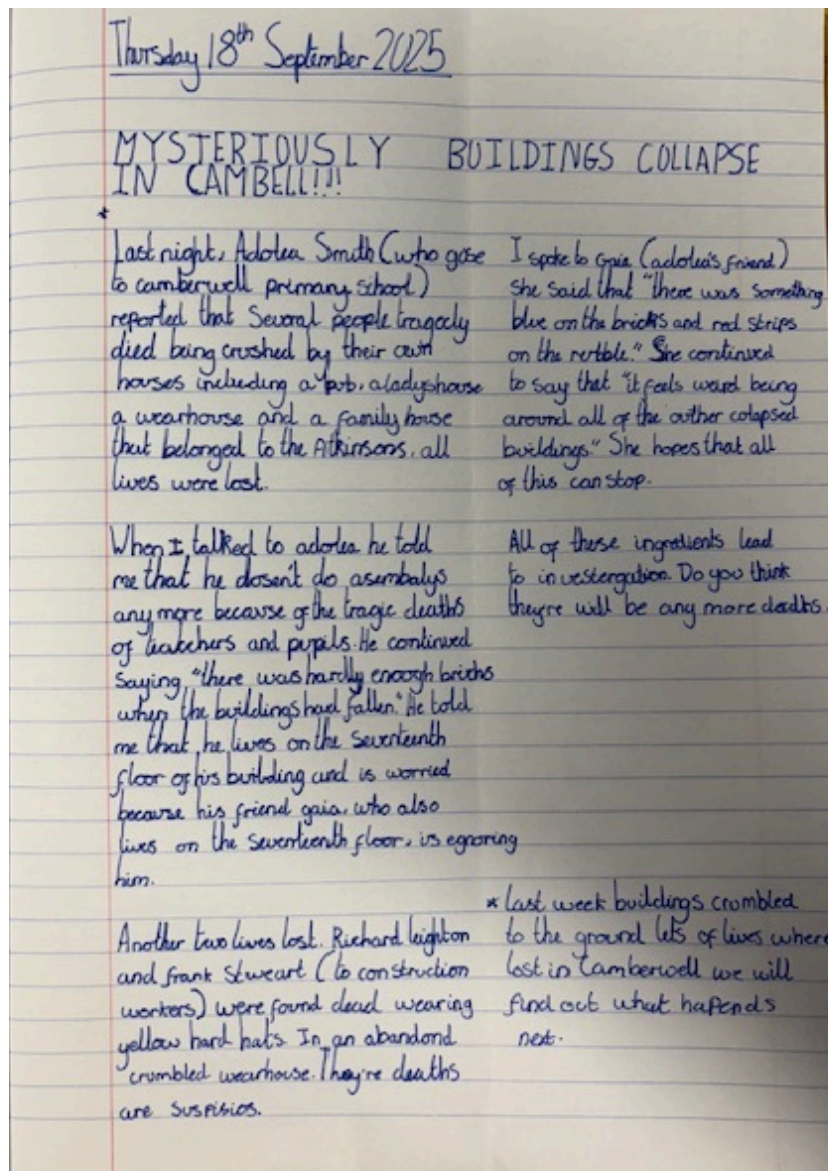 Thursday 18th September 2025
MYSTERIOUSLY BUILDINGS COLLAPSE
IN CAMBELL!!!
*
Last night, Adolea Smith (who gose
to camberwell primary school)
reported that Several people tragecly
died being crushed by their own
houses including a pub, a ladys house
a wearhouse and a family house
that belonged to the Atkinsons, all
lives were lost.
When I talked to adolea he told
me that he dosen't do asembalys
any more because of the tragic deaths
of teatchers and pupils. He continued
saying "there was hardly enough bricks
when the buildings had fallen." He told
me that he lives on the seventeenth
floor of his building and is worried
because his friend gaia, who also
lives on the seventeenth floor, is egnoring
him.
Another two lives lost. Richard leighton
and frank Stweart (to construction
workers) were found dead wearing
yellow hard hats. In an abandond
crumbled wearhouse. They're deaths
are suspisios.
I spoke to gaia (adolea's friend)
she said that "there was something
blue on the bricks and red strips
on the rubble." She continued
to say that "it feels ward being
around all of the outher colapsed
buildings." She hopes that all
of this can stop.
All of these ingredients lead
to investergation. Do you think
they're will be any more deaths.
* last week buildings crumbled
to the ground lots of lives where
lost in Camberwell we will
find out what hapends
next.